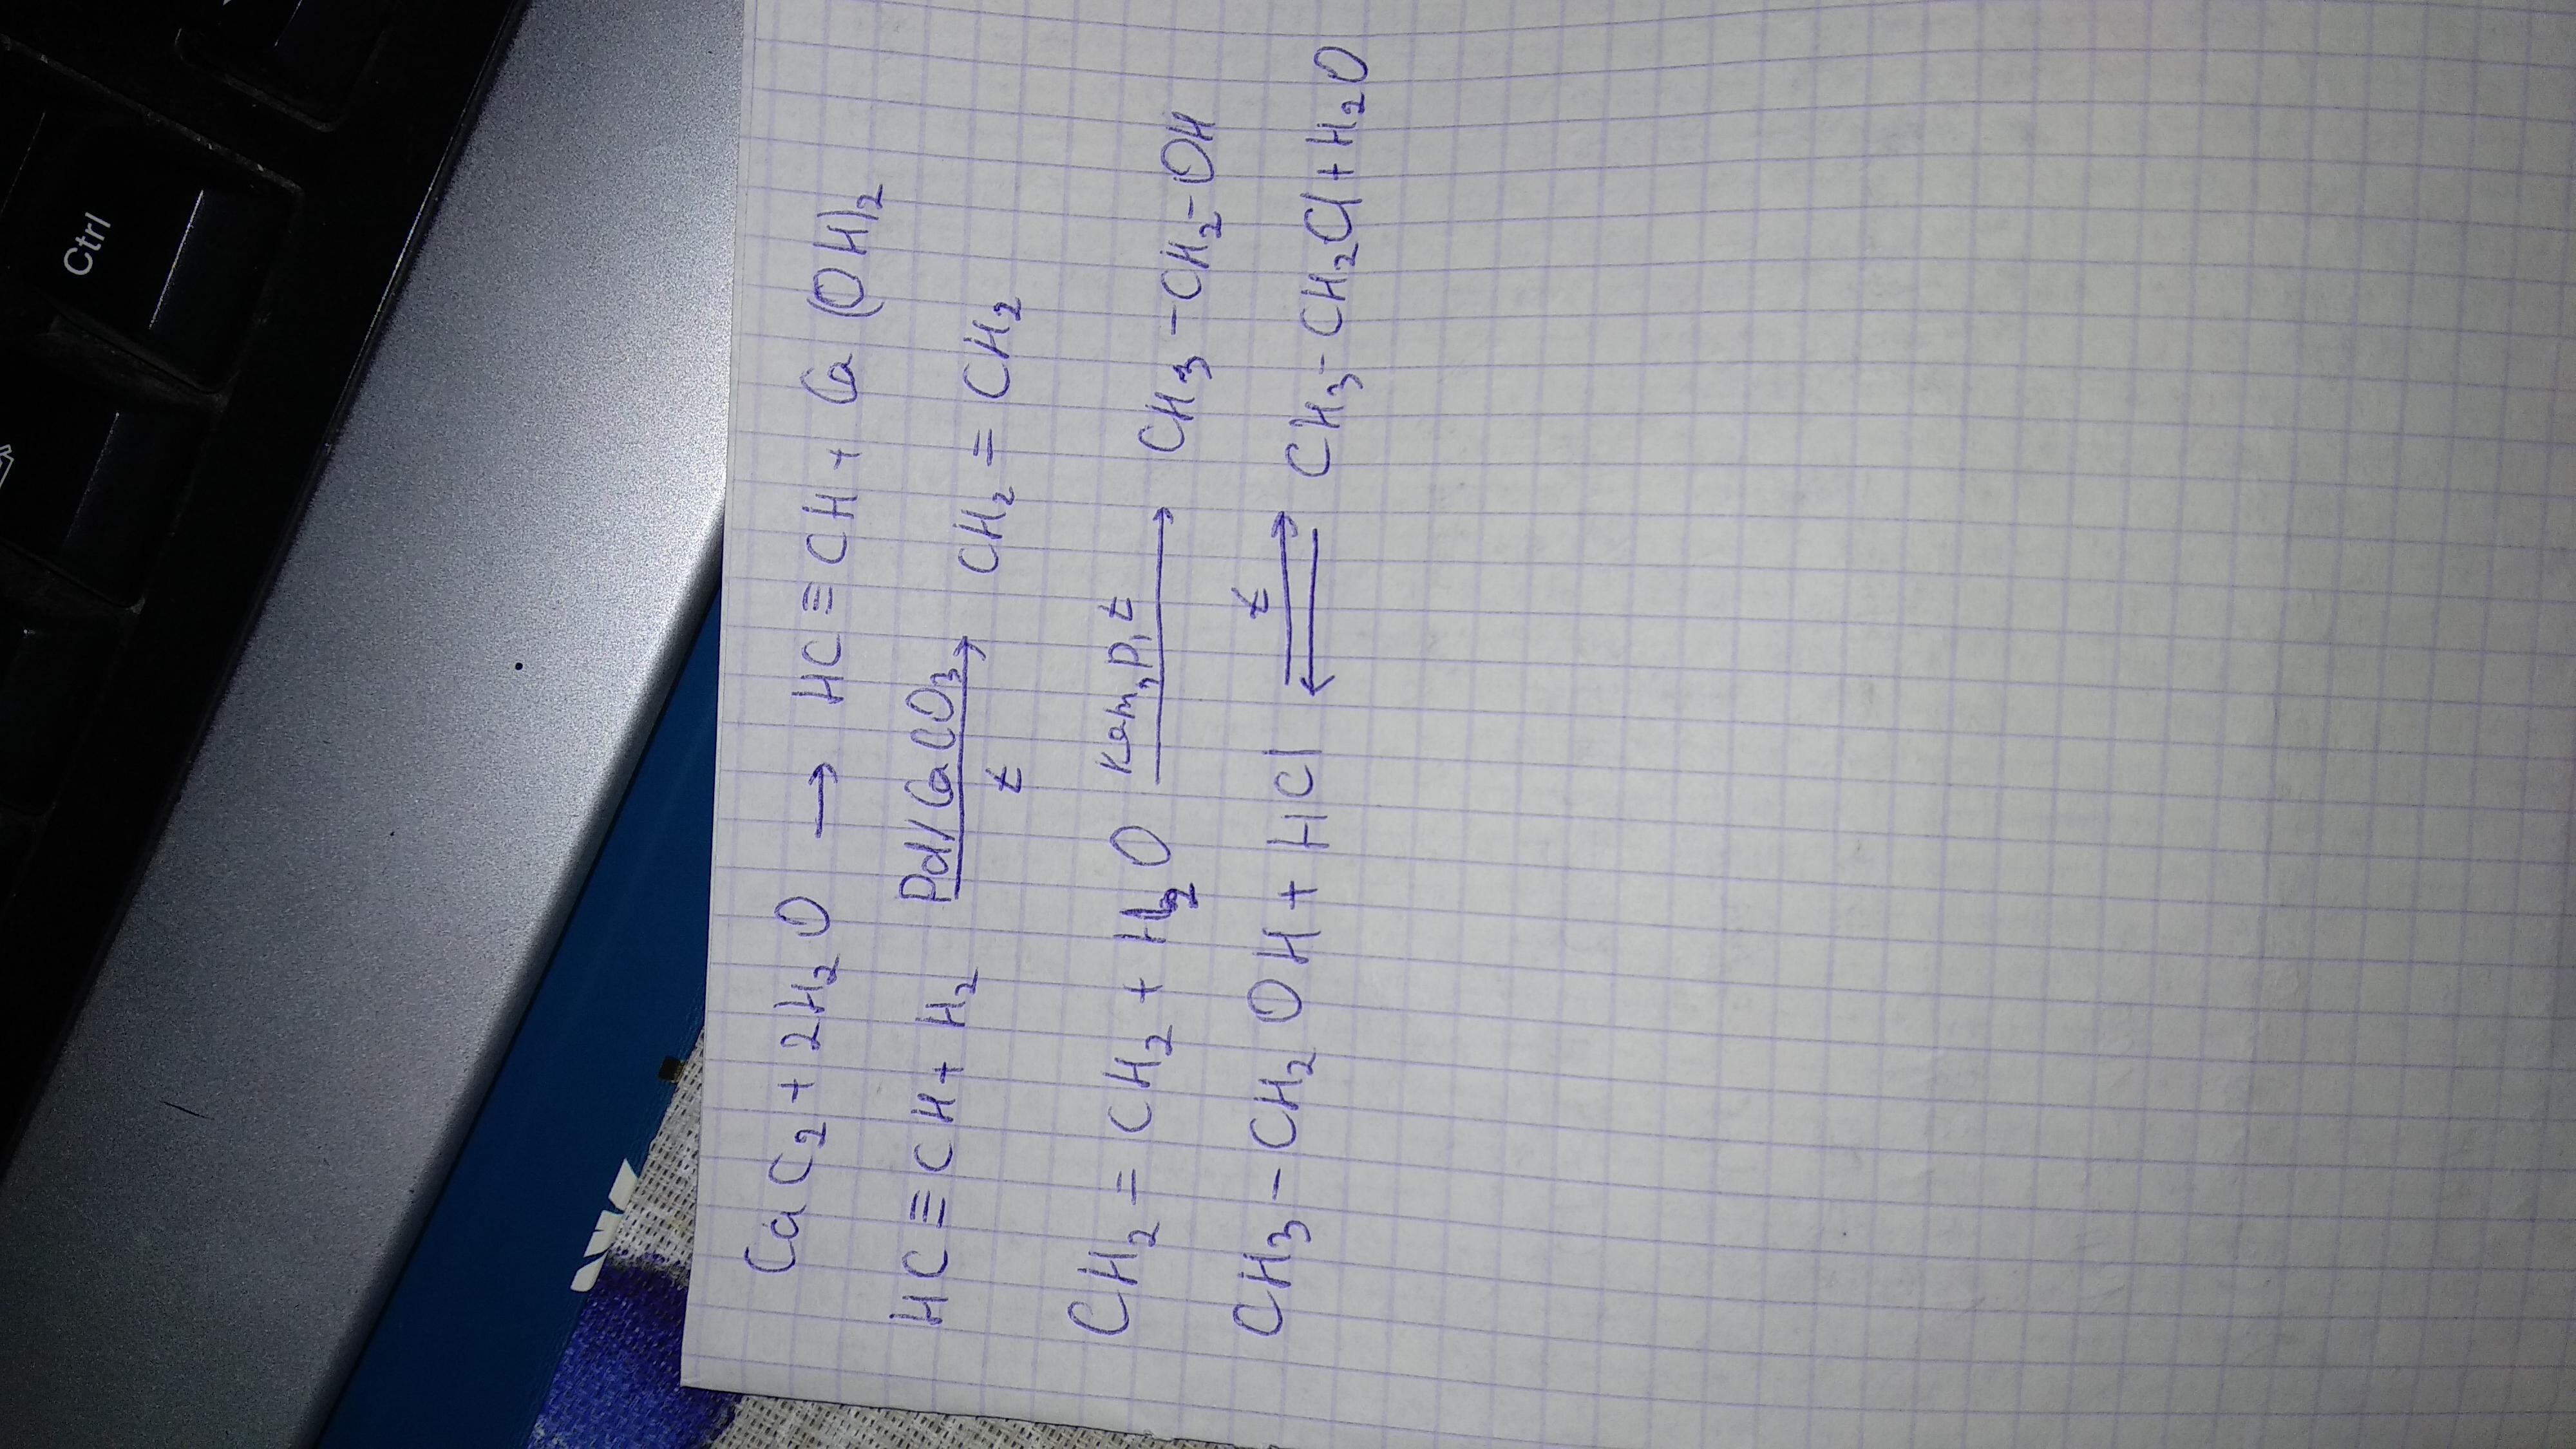 CaC₂ + 2H₂O → HC≡CH + Ca(OH)₂
HC≡CH + H₂ Pd/CaCO₃ → t CH₂=CH₂
CH₂=CH₂ + H₂O кат, p, t → CH₃-CH₂-OH
CH₃-CH₂OH + HCl t ⇄ CH₃-CH₂Cl + H₂O
Ctrl